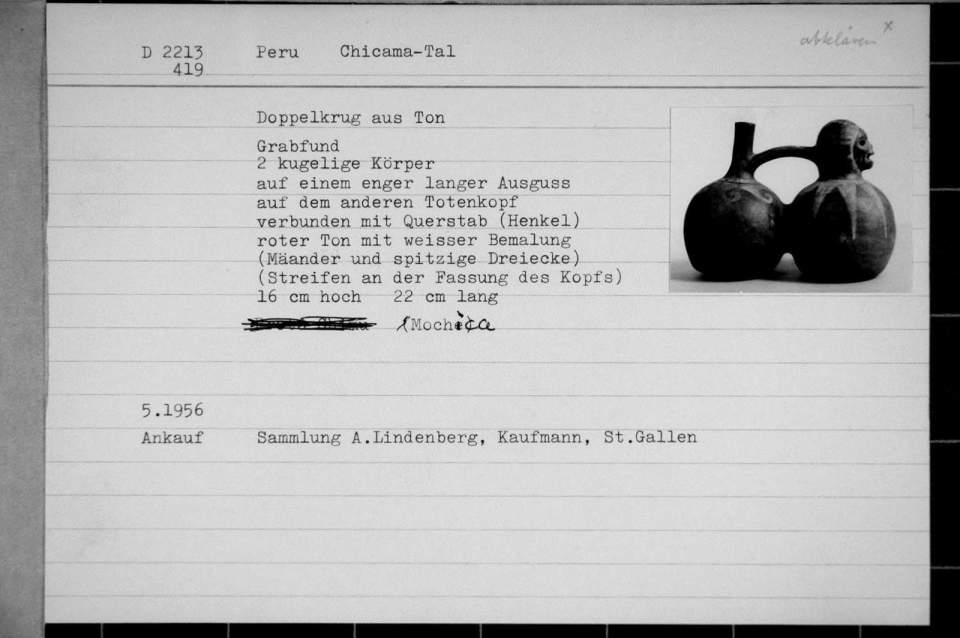 D 2213 Peru Chicama-Tal abklären x
419
Doppelkrug aus Ton
Grabfund
2 kugelige Körper
auf einem enger langer Ausguss
auf dem anderen Totenkopf
verbunden mit Querstab (Henkel)
roter Ton mit weisser Bemalung
(Mäander und spitzige Dreiecke)
(Streifen an der Fassung des Kopfs)
16 cm hoch 22 cm lang
Mochica
5.1956
Ankauf Sammlung A.Lindenberg, Kaufmann, St.Gallen